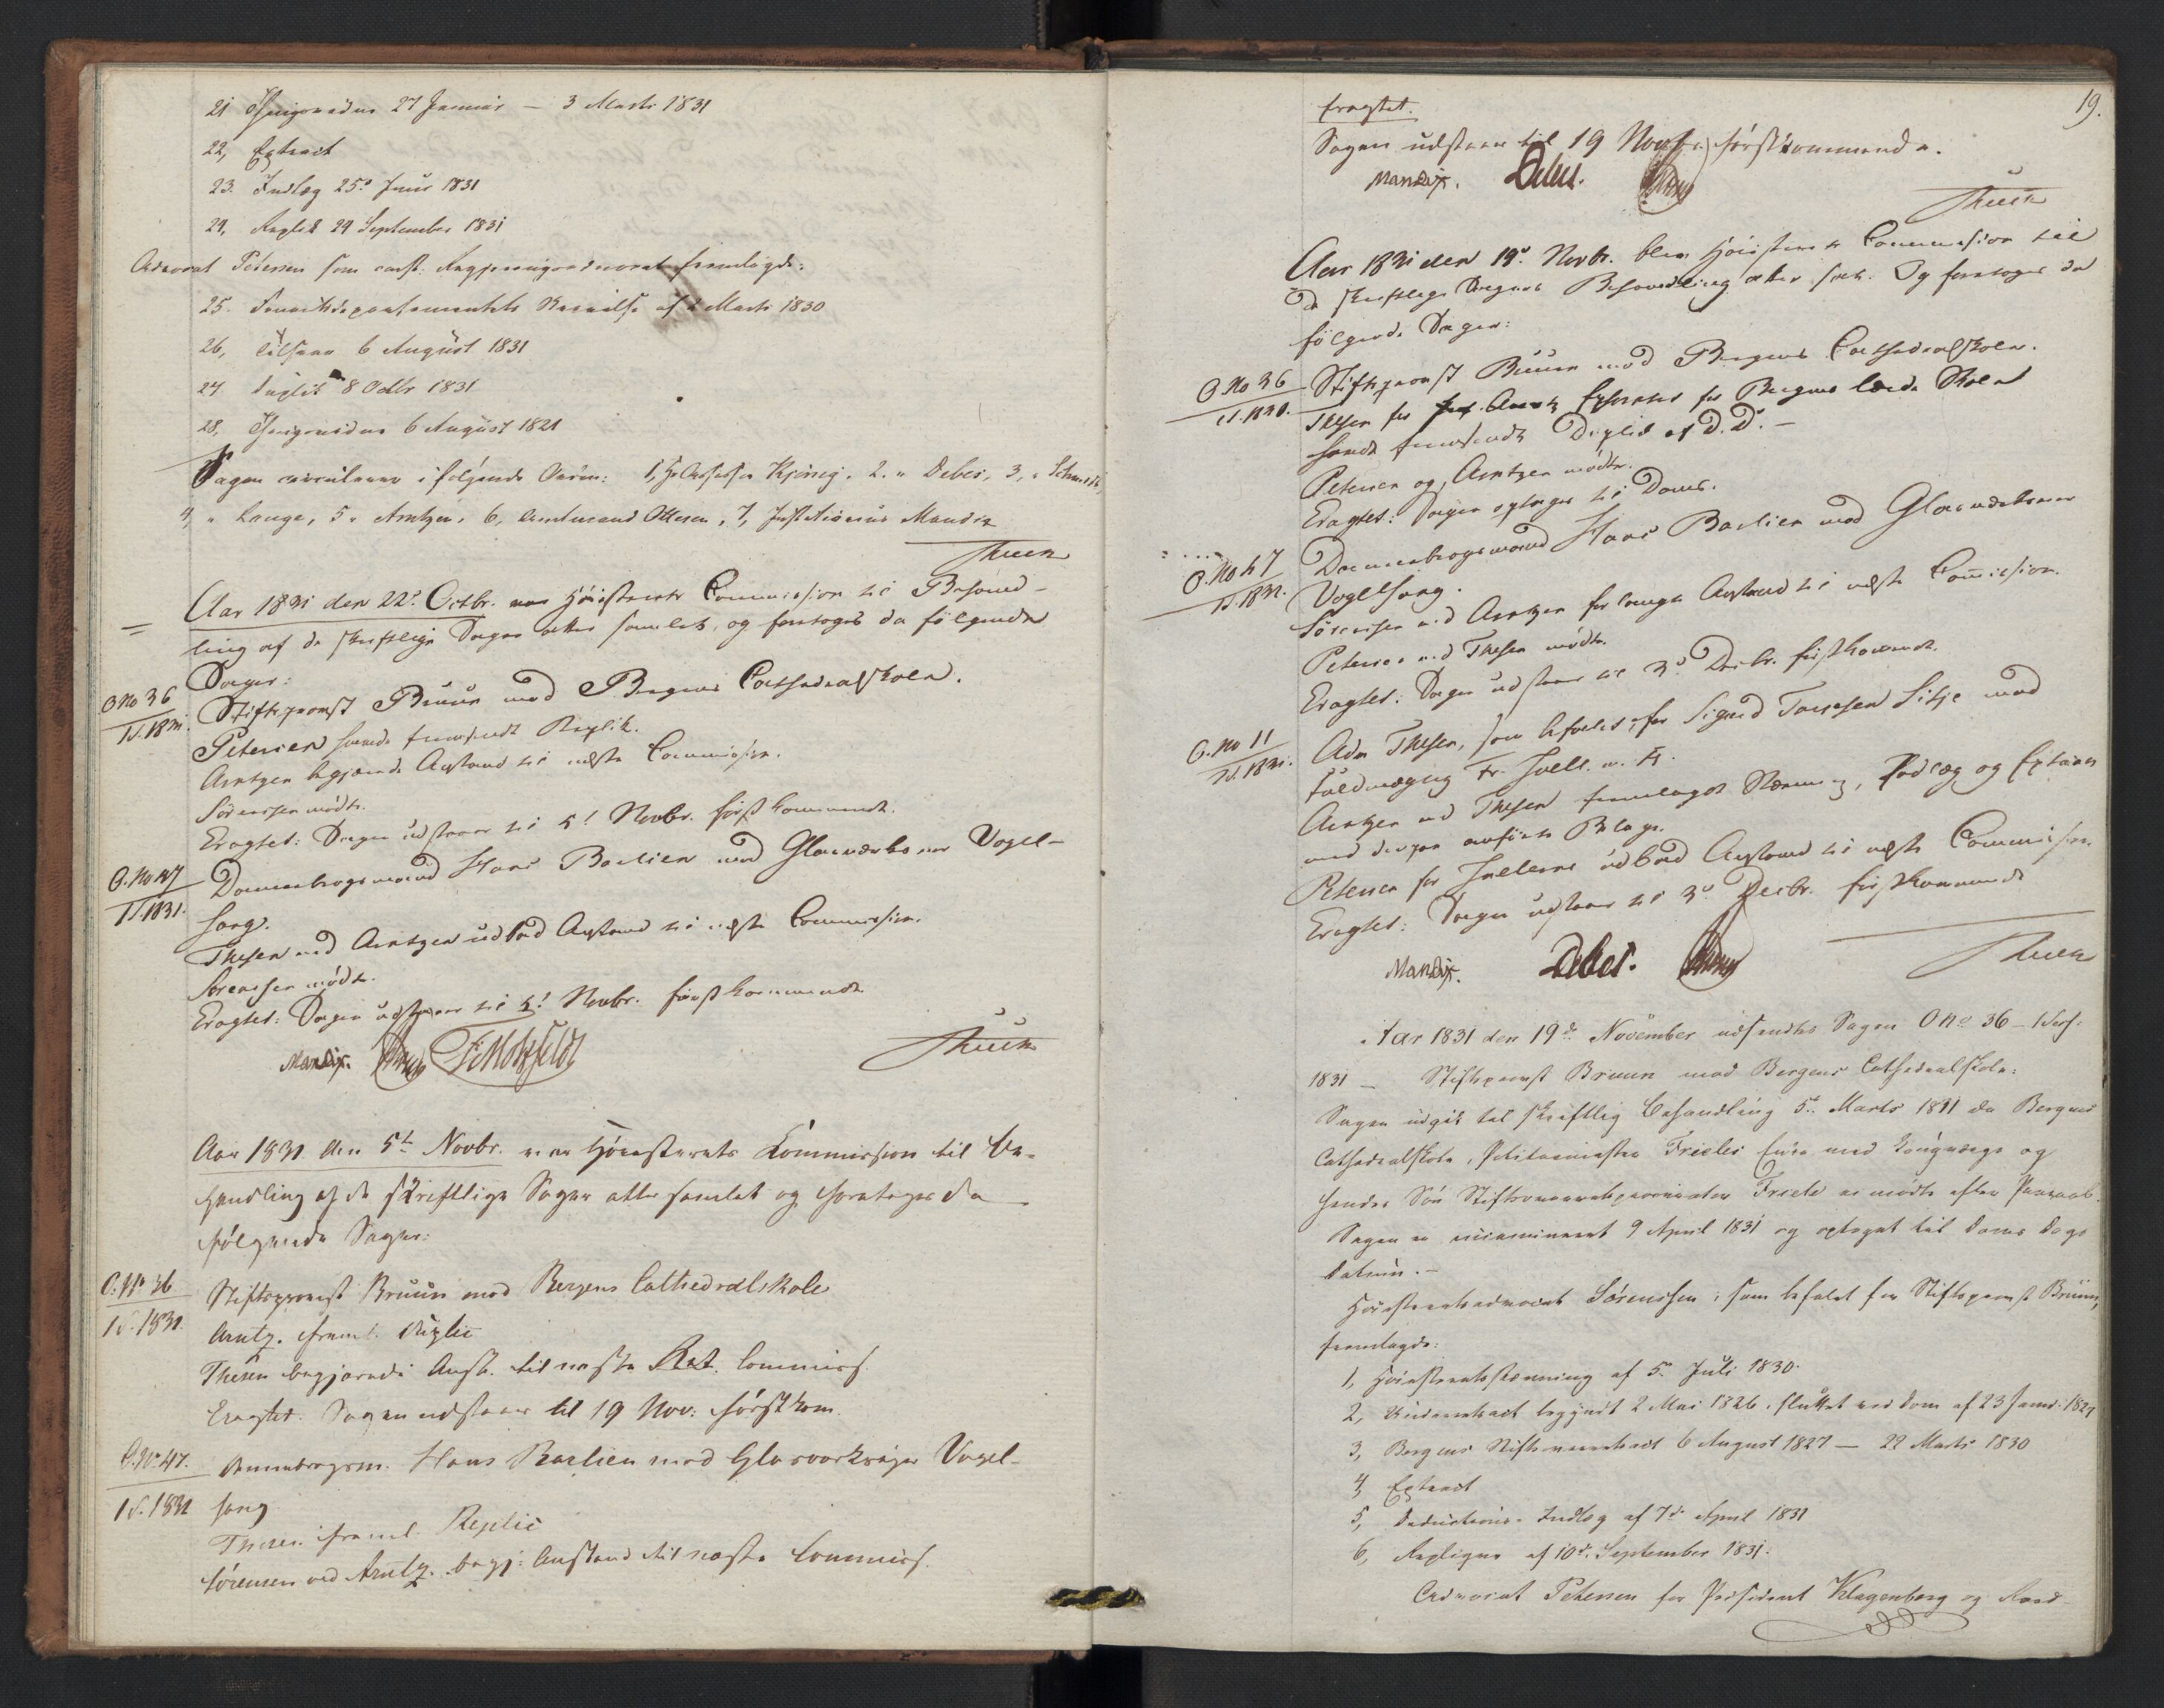 21 Thingsvidne 27 Januar – 3 Marts 1831
22, Extract
23. Indlæg 25de Juni 1831
24, Replik 24 September 1831
Advocat Petersen som const: Regjeringsadvocat fremlagde:
25. Finantsdepartementets Skrivelse af 2 Marts 1830
26, Tilsvar 6 August 1831
27 Duplik 8 Octbr 1831
28, Thingsvidne 6 August 1821
Sagen circulerer i følgende Orden: 1, Hr Assessor Kjønig, 2. " Debes, 3, " Schmidt,
4, " Lange, 5 " Arntzen, 6, Amtmand Ottesen, 7, Justitiarius Mandix
Thuen
Aar 1831 den 22de Octbr. var Høiesterets Commission til Behand-
ling af de skriftlige Sager atter samlet, og foretoges da følgende
Sager:
O No 36
1S. 1831.
Stiftsprovst Bruun mod Bergens Cathedralskole.
Petersen havde fremsendt Replik.
Arntzen begjærede Anstand til næste Commission.
Sørenssen mødte.
Eragtet: Sagen udstaaer til 5te Novbr. førstkommende.
O. No 47
1S. 1831.
Dannebrogsmand Hans Barlien mod Glasværkseier Vogel-
sang.
Thesen ved Arntzen udbad Anstand til næste Commission.
Sørenssen mødte.
Eragtet: Sagen udstaaer til 5te Novbr. førstkommende
Mandix. F. Motzfeldt
Thuen
Aar 1831 den 5te Novbr. var Høiesterets Kommission til Be-
handling af de skriftlige Sager atter samlet og foretoges da
følgende Sager:
O. No 36
1S. 1831.
Stiftsprovst Bruun mod Bergens Cathedralskole
Arntz. freml. Duplic
Thesen begjærede Anst. til næste Ret. Commiss.
Eragtet: Sagen udstaaer til 19 Nov: førstkom.
O. No 47.
1S. 1831
Dannebrogsm. Hans Barlien mod Glasværkseier Vogel-
sang
Thesen freml. Replic
Sørensen ved Arntz. begj: Anstand til næste Commiss.
19.
Eragtet.
Sagen udstaaer til 19 Novbr. førstkommende.
Mandix. Debes.
Thuen
Aar 1831 den 19de Novbr. blev Høiesterets Commission til
de skriftlige Sagers Behandling atter sat. Og foretoges da
følgende Sager:
O No 36
1S. 1831.
Stiftsprovst Bruun mod Bergens Cathedralskole.
Thesen for Ephoratet for Bergens lærde Skole
havde fremsendt Duplik af D. D. –
Petersen og Arntzen mødte.
Eragtet: Sagen optages til Doms.
O. No 47
1S. 1831.
Dannebrogsmand Hans Barlien mod Glasværkseier
Vogelsang.
Sørensen ved Arntzen forlangte Anstand til næste Commission.
Petersen ved Thesen mødte.
Eragtet: Sagen udstaaer til 3de Decbr. førstkommende.
O. No 11
1S. 1831.
Adv Thesen, som befalet, for Sigurd Torresen Sitje mod
Fuldmægtig Fr. Juell. m. Fl.
Arntzen ved Thesen fremlagde Stævning, Indlæg og Extract
med deri paaanførte Bilage.
Petersen for Juellerne udbad Anstand til næste Commission
Eragtet: Sagen udstaaer til 3de Decbr. førstkommende
Mandix. Debes.
Thuen
Aar 1831 den 19de November udsendtes Sagen O No 36 – 1 Sess:
1831 – Stiftsprovst Bruun mod Bergens Cathedralskole:
Sagen udgik til skriftlig Behandling 5te Marts 1831 da Bergens
Cathedralskole, Politimester Frieles Enke med Laugværge og
hendes Søn Stiftsoverretsprocurator Friele ei mødte efter Paaraab.
Sagen er incamineret 9 April 1831 og optaget til Doms Dags
Datum. –
Høiesteretsadvocat Sørenssen, som befalet for Stiftsprovst Bruun,
fremlagde:
1, Høiesteretsstævning af 5te Juli 1830.
2, Underretsact begyndt 2 Mai 1826, sluttet ved Dom af 23 Januar 1827
3, Bergens Stiftsoverretsact 6 August 1827 – 22 Marts 1830
4, Extract
5, Deductions-Indlæg af 7de April 1831
6, Repliquen af 10de September 1831.
Advocat Petersen for President Klagenberg og Raad-